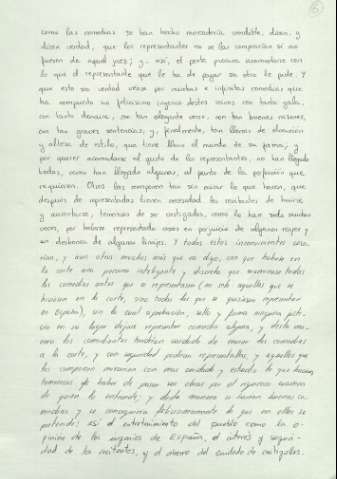 6
como las comedias se han hecho mercadería vendible, dicen, y
dicen verdad, que los representantes no se las comprarían si no
fuesen de aquel jaez; y, así, el poeta procura acomodarse con
lo que el representante que le ha de pagar su obra le pide. Y
que esto sea verdad véase por muchas e infinitas comedias que
ha compuesto un felicísimo ingenio destos reinos con tanta gala,
con tanto donaire, con tan elegante verso, con tan buenas razones,
con tan graves sentencias, y, finalmente, tan llenas de elocución
y alteza de estilo, que tiene lleno el mundo de su fama; y
por querer acomodarse al gusto de los representantes, no han llegado
todas, como han llegado algunas, al punto de la perfección que
requieren. Otros las componen tan sin mirar lo que hacen, que
después de representadas tienen necesidad los recitantes de huirse
y ausentarse, temerosos de ser castigados, como lo han sido muchas
veces, por haberse representado cosas en perjuicio de algunos reyes y
en deshonra de algunos linajes. Y todos estos inconvenientes cesa-
rían, y aun otros muchos más que no digo, con que hubiese en
la corte una persona inteligente y discreta que examinase todas
las comedias antes que se representasen (no sólo aquellas que se
hiciesen en la corte, sino todas las que se quisiesen representar
en España), sin la cual aprobación, sello y firma ninguna justi-
cia en su lugar dejase representar comedia alguna, y desta ma-
nera los comediantes tendrían cuidado de enviar las comedias
a la corte, y con seguridad podrían representallas, y aquellos que
las componen mirarían con más cuidado y estudio lo que hacían,
temerosos de haber de pasar sus obras por el riguroso examen
de quien lo entiende; y desta manera se harían buenas co-
medias y se conseguiría felicísimamente lo que en ellas se
pretende: así el entretenimiento del pueblo como la o-
pinión de los ingenios de España, el interés y seguri-
dad de los recitantes, y el ahorro del cuidado de castigallos.